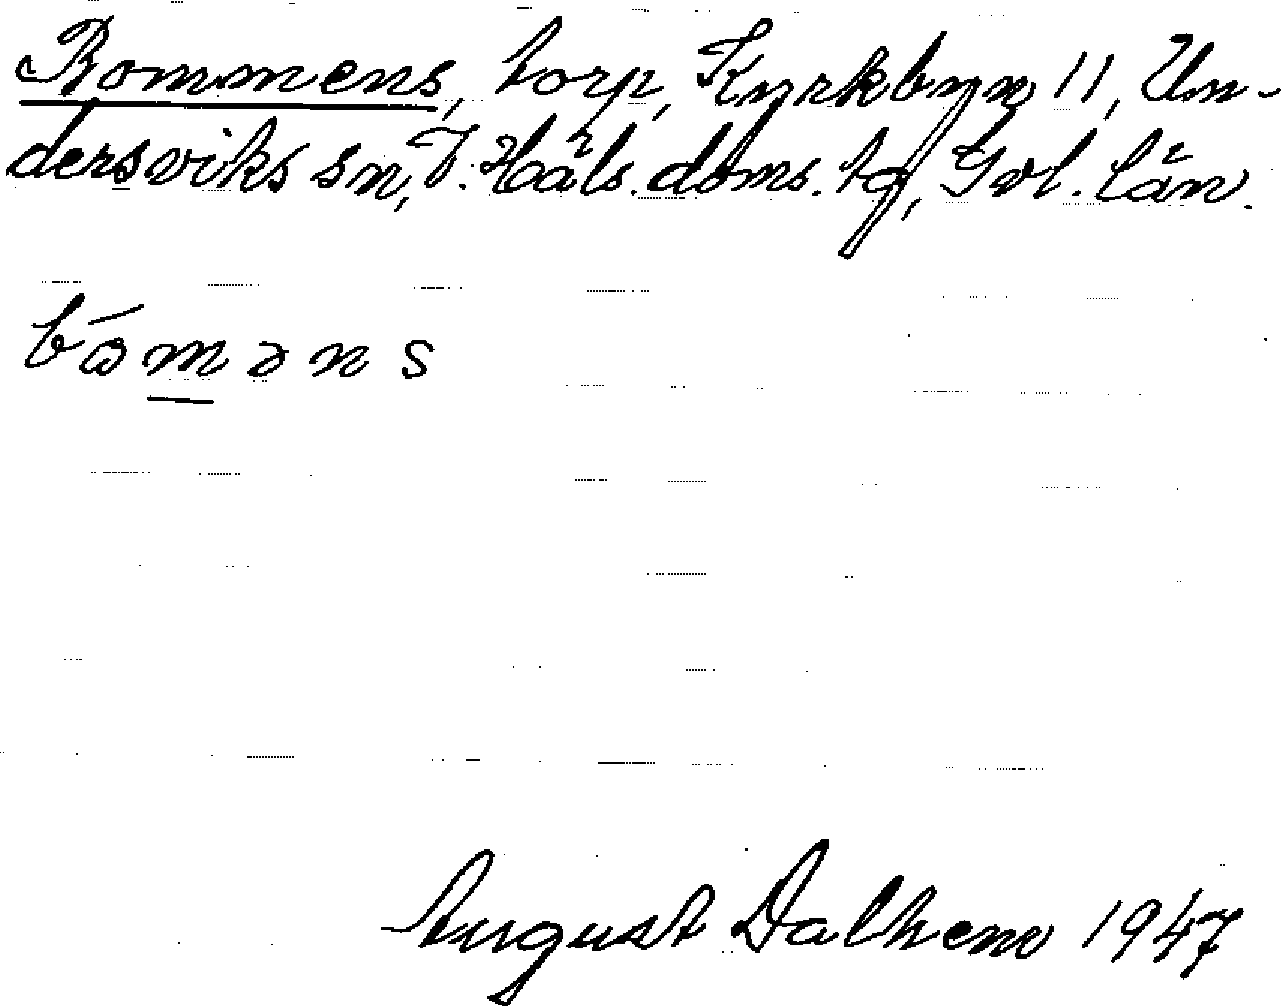 Bommens, torp, Kyrkbyn 11, Un-
dersviks sn, V. Häls. doms. tg, Gvl. län.
August Dalhem 1947